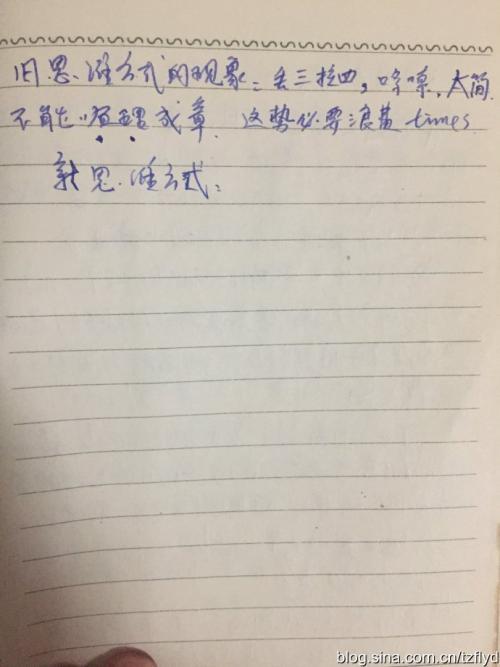 旧思维方式的现象：丢三拉四，啰嗦，太简.
不能顺理成章. 这势必要浪费 times
新思维方式：
blog.sina.com.cn/tzflyd